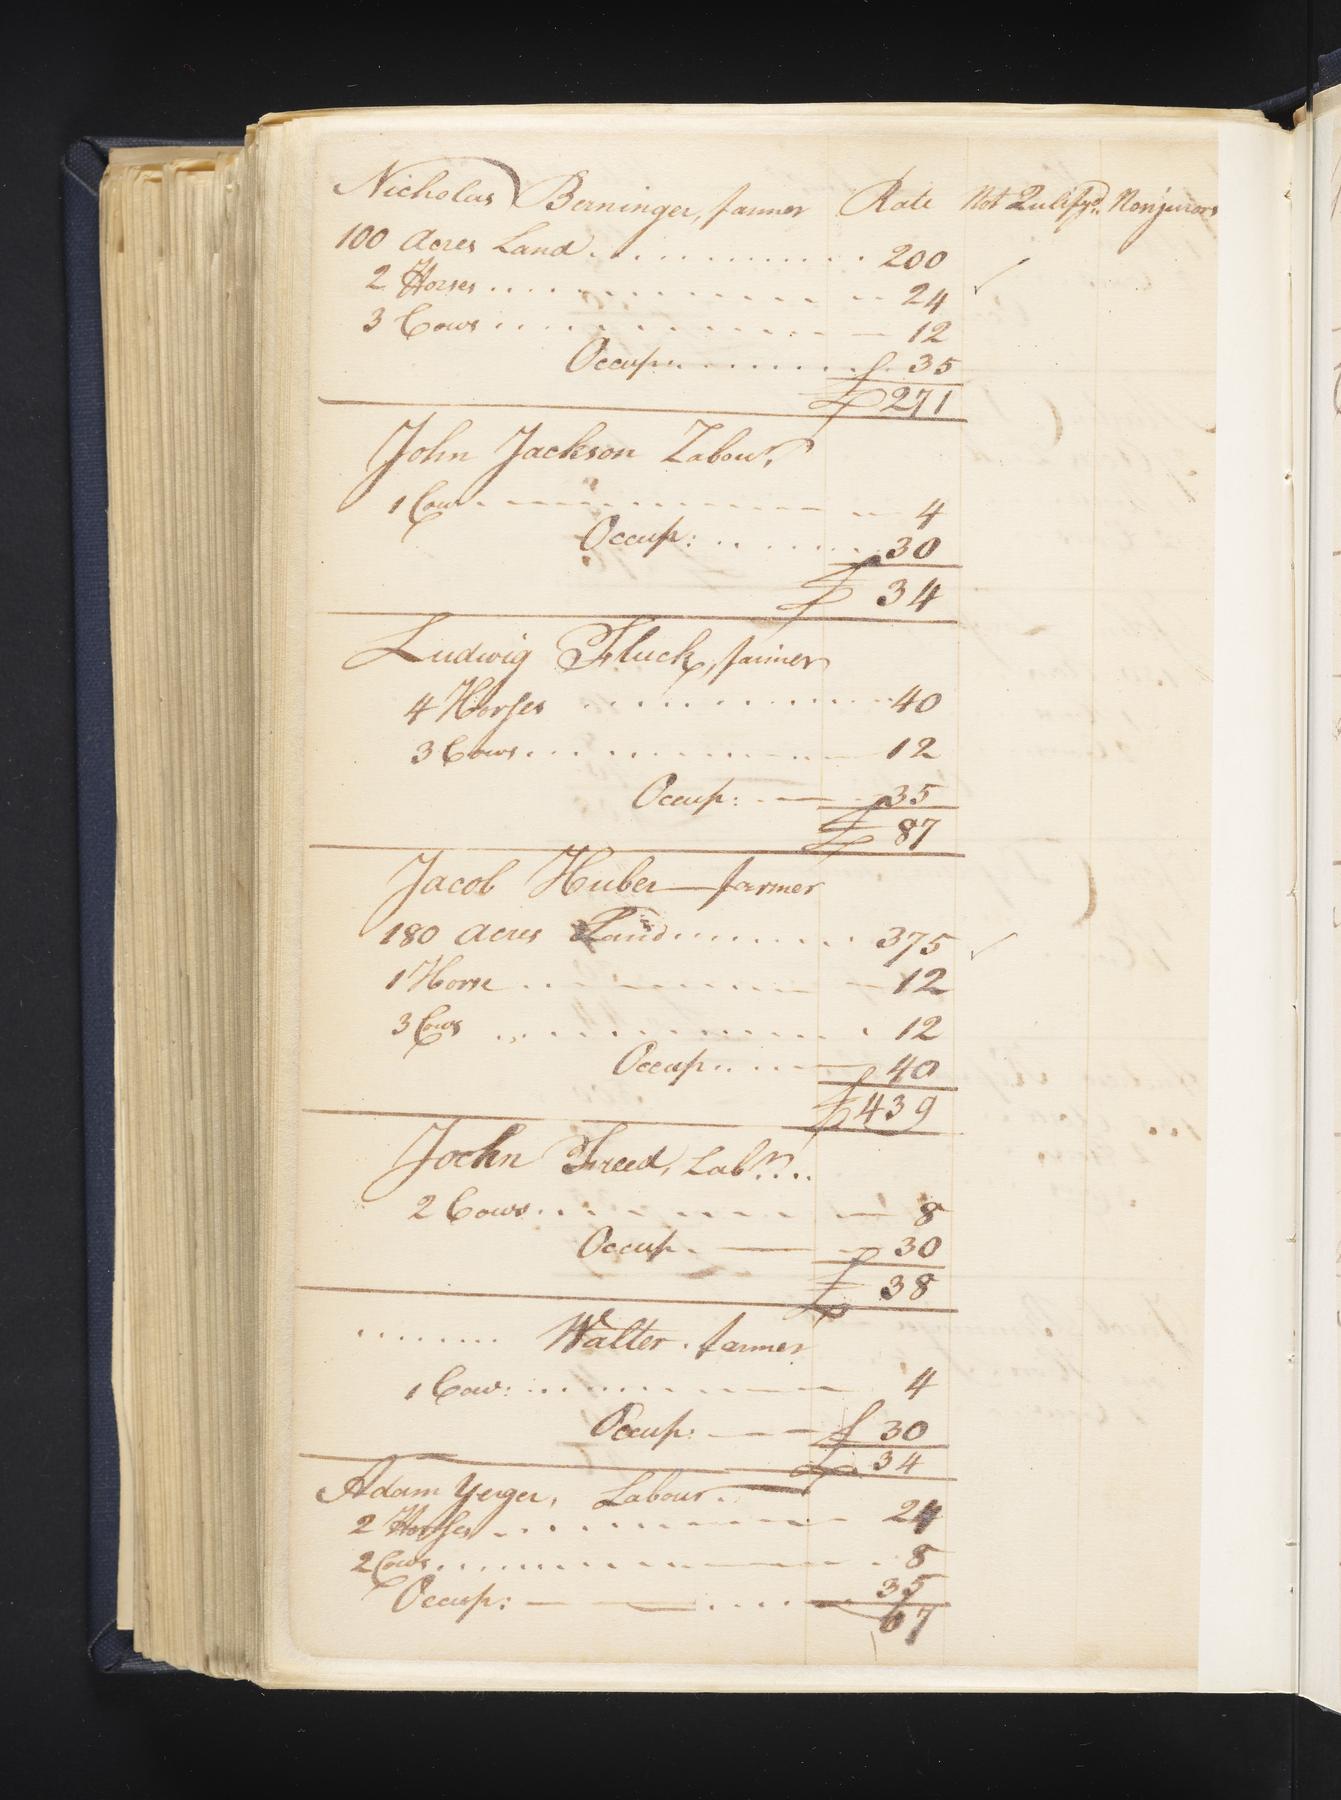 Nicholas Berninger, farmer Rate Not Qulifyd. Nonjurors
100 Acres Land. . . . . . . . . . . . 200
2 Horses . . . . . . . . . . . 24 ✓
3 Cows . . . . . . . . . . . 12
Occup. . . . . . . . . 35
£ 271
John Jackson Labour.
1 Cow - - - - - - - - - - 4
Occup: . . . . . . . 30
£ 34
Ludwig Fluck, farmer
4 Horses . . . . . . . . . . . 40
3 Cows. . . . . . . . . . . 12
Occup: - — - 35
£ 87
Jacob Huber — farmer
180 Acres Land. . . . . . . . . 375 ✓
1 Horse . . . . . . . . . . 12
3 Cows . . . . . . . . . . 12
Occup. . . . — 40
£ 439
Joehn Freed, Labr. . .
2 Cows. . . . . . . . . — 8
Occup. — - 30
£ 38
. . . . . . . . . Walter. farmer
1 Cow: . . . . . . . . . . 4
Occup: — — - £ 30
£ 34
Adam Yerger, Labour.
2 Horses . . . . . . . . . . 24
2 Cows. . . . . . . . . . . . 8
Occup: — — . . . . — 35
67